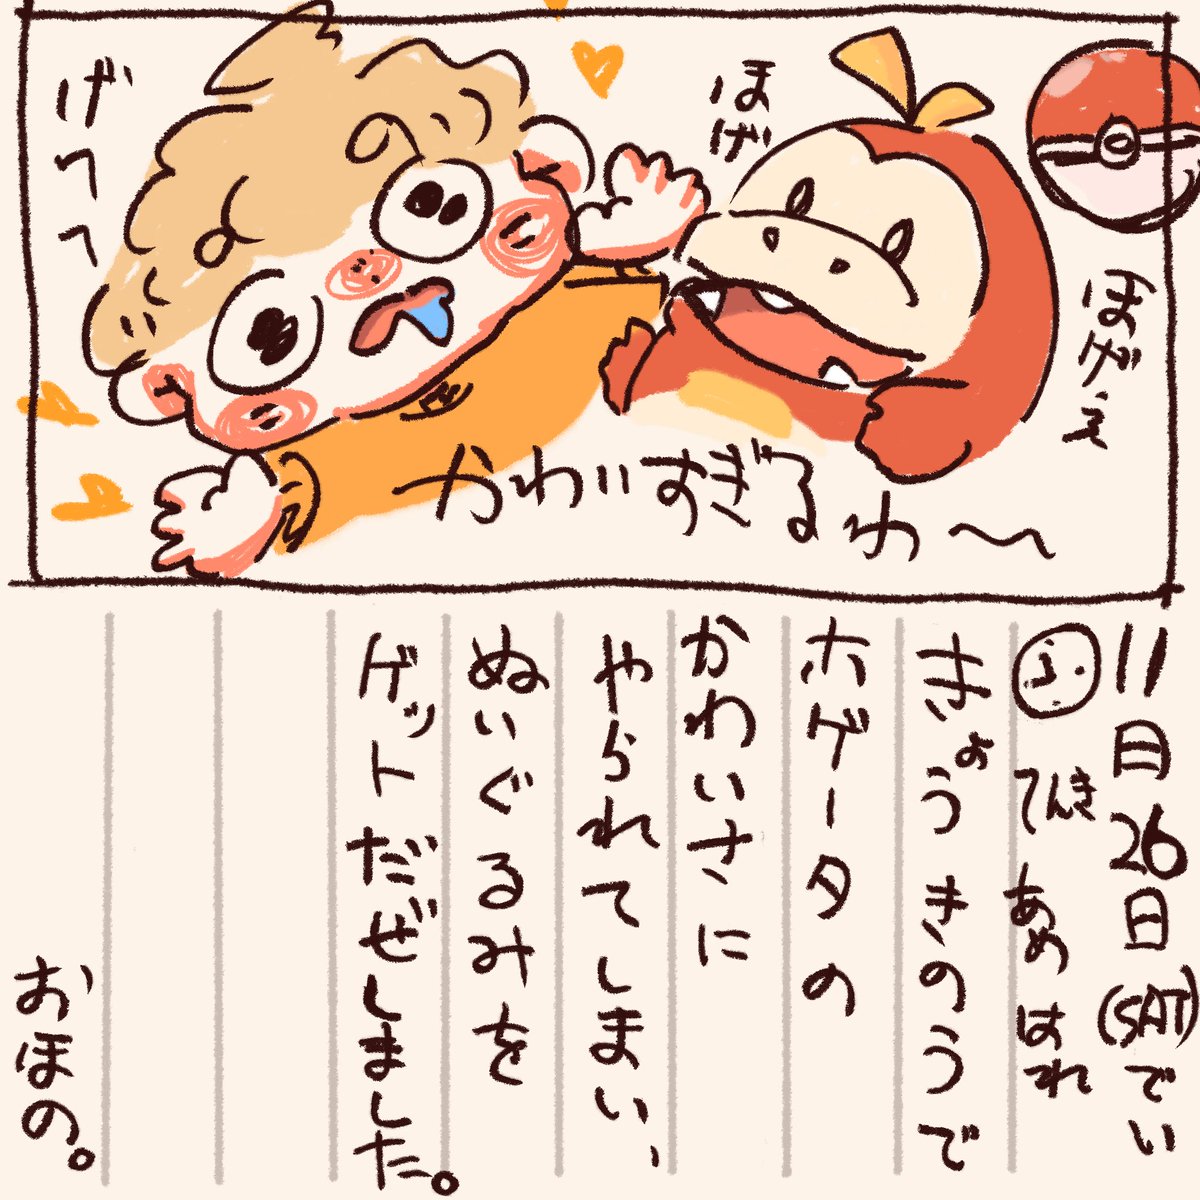 げへへ
ほげ
ほげぇ
かわいすぎるわ〜
11月26日(SAT)でい
てんき あめ はれ
きょう きのうで
ホゲータの
かわいさに
やられてしまい、
ぬいぐるみを
ゲットだぜしました。
おほの。